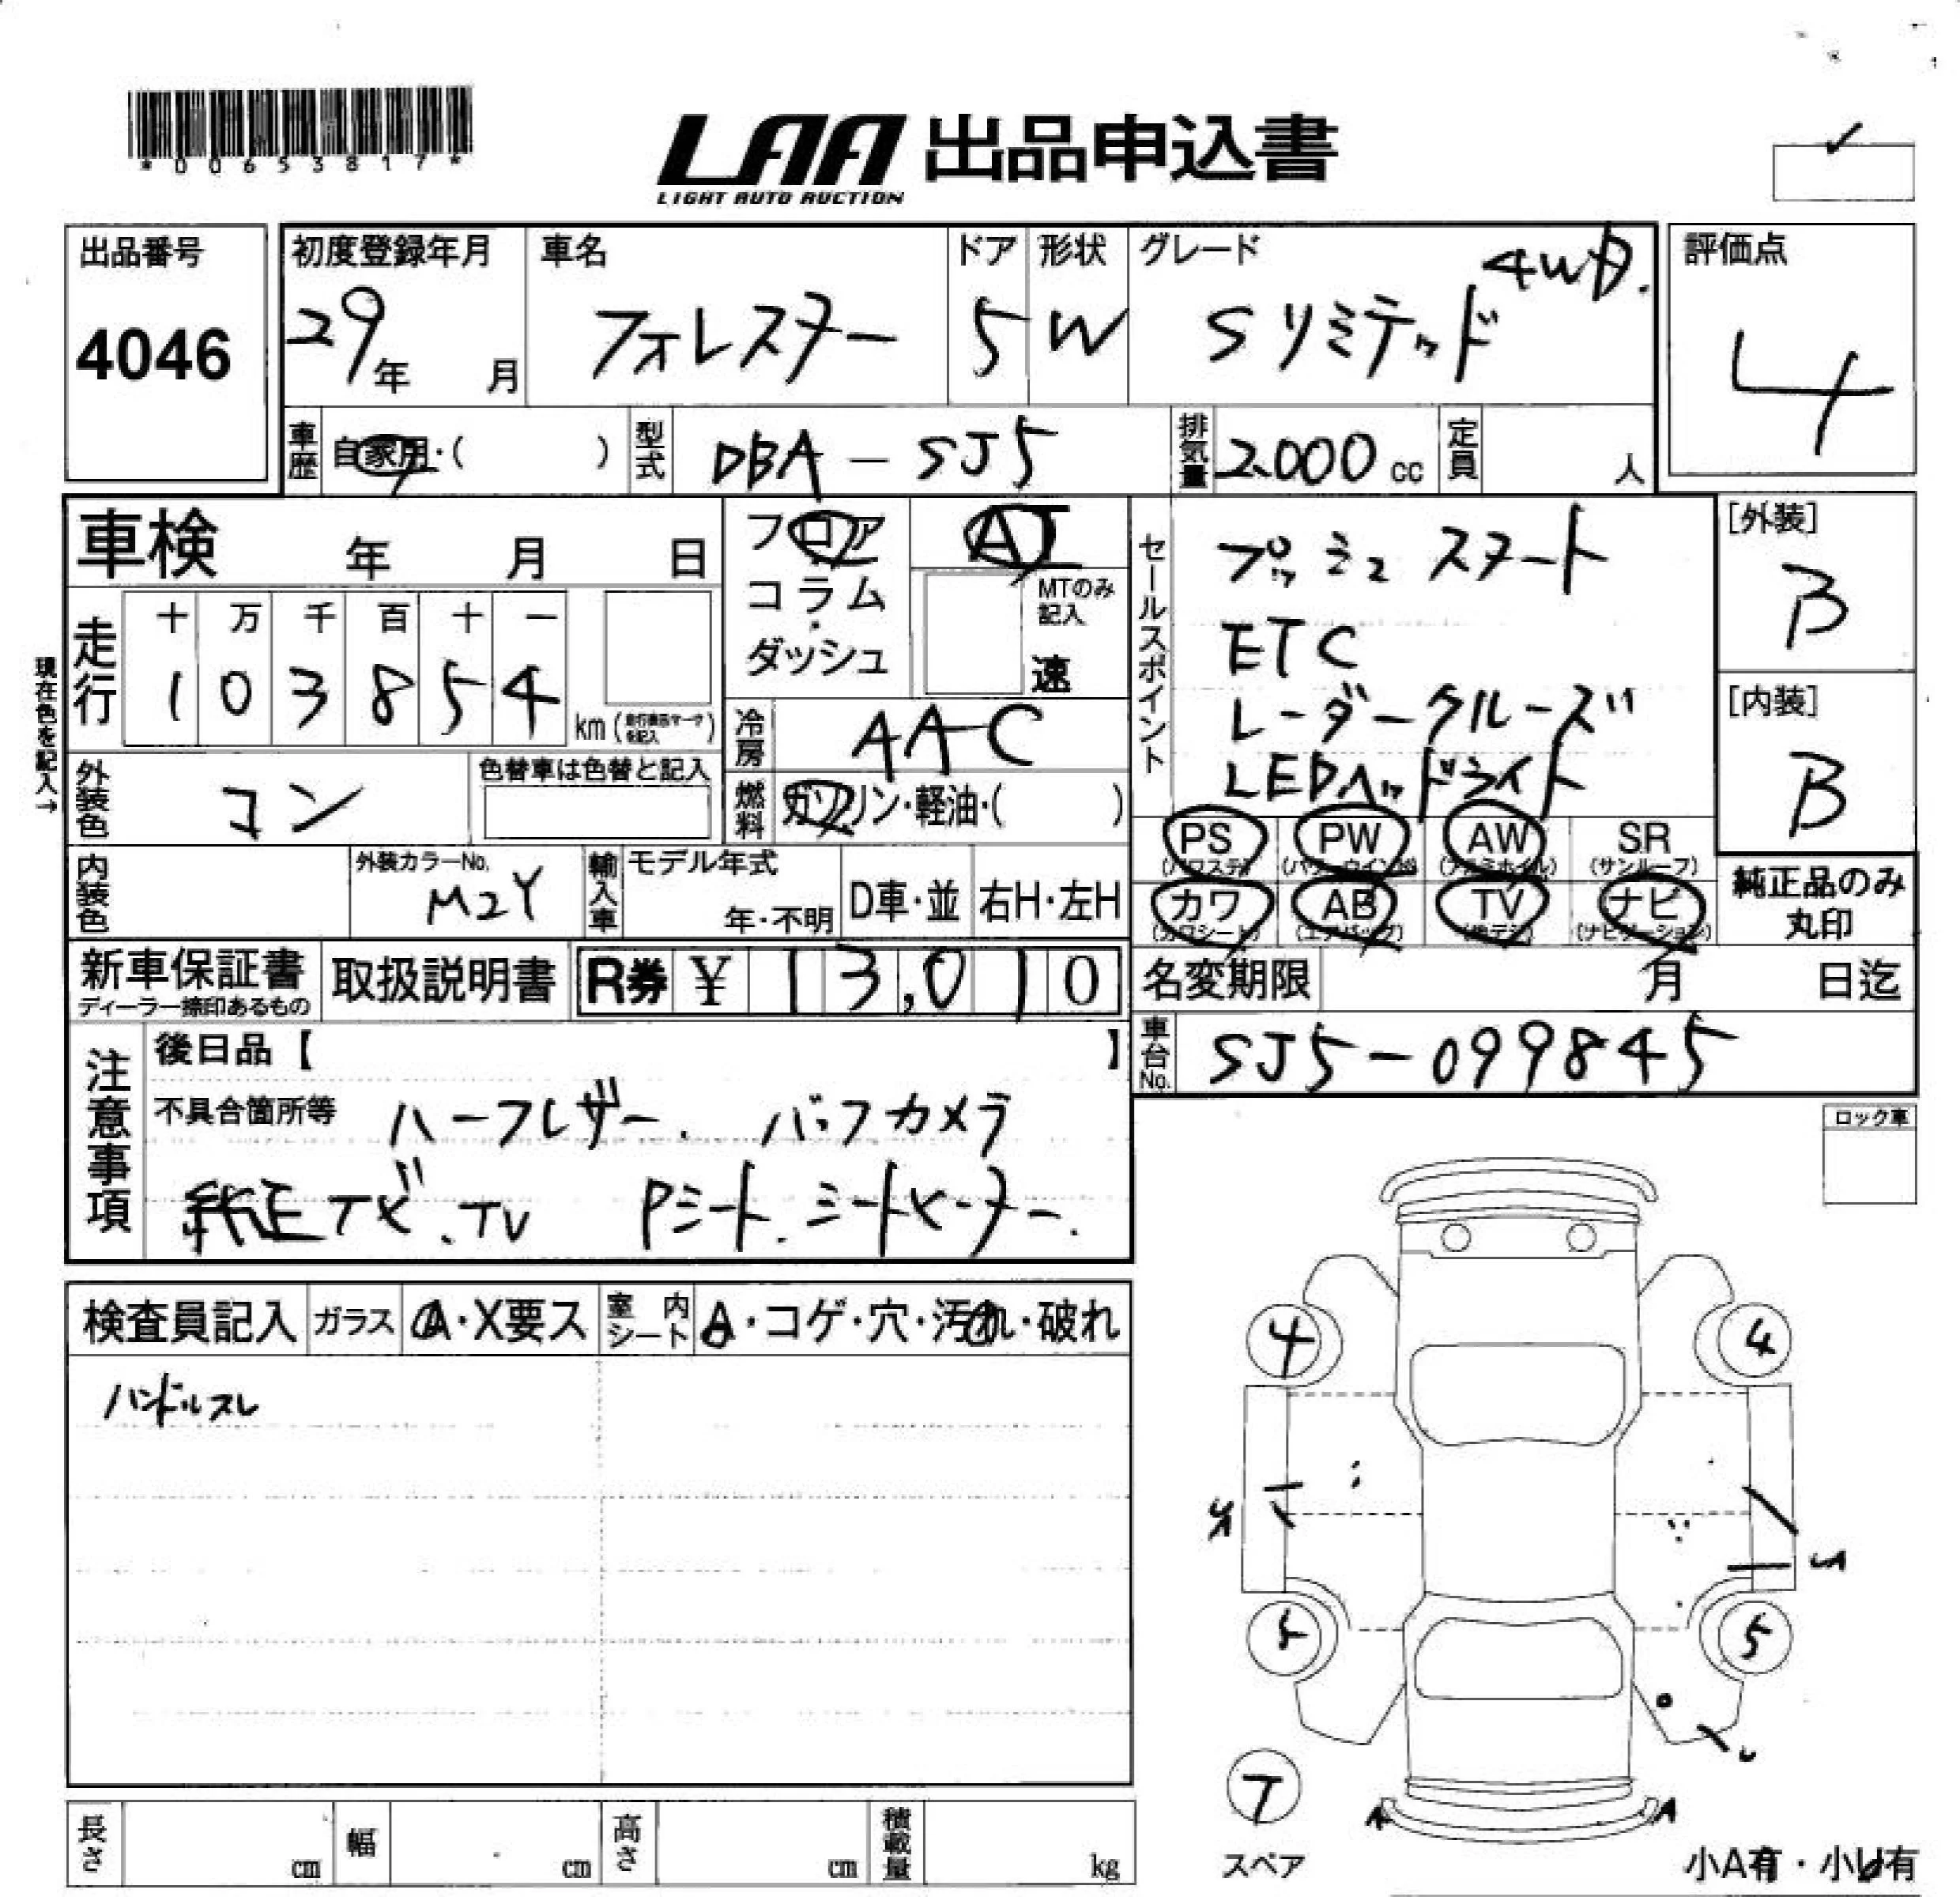 *00653817*
LAA 出品申込書
LIGHT AUTO AUCTION
出品番号
4046
初度登録年月
29年 月
車名
フォレスター
ドア
5
形状
W
グレード
4WD.
Sリミテッド
評価点
4
車歴 自家用・( )
型式 DBA-SJ5
排気量 2.000 cc
定員 人
車検 年 月 日
フロア
コラム
ダッシュ
AT
MTのみ記入
速
走行
十 万 千 百 十 一
1 0 3 8 5 4
km
現在色を記入→
冷房 AAC
外装色 コン
色替車は色替と記入
燃料 ガソリン・軽油・( )
内装色
外装カラーNo.
M2Y
輸入車
モデル年式
年・不明
D車・並
右H・左H
セールスポイント
プッシュスタート
ETC
レーダークルーズ
LEDヘッドライト
[外装]
B
[内装]
B
PS (パワステ)
PW (パワーウインドウ)
AW (アルミホイル)
SR (サンルーフ)
カワ (カワシート)
AB (エアバッグ)
TV (地デジ)
ナビ (ナビゲーション)
純正品のみ
丸印
新車保証書
ディーラー捺印あるもの
取扱説明書
R券 ¥ 13,010
名変期限 月 日迄
車台No. SJ5-099845
注意事項
後日品【 】
不具合箇所等 ハーフレザー. バックカメラ
純正ナビ.TV Pシート.シートヒーター.
ロック車
検査員記入
ガラス A・X要ス
室内シート A・コゲ・穴・汚れ・破れ
ハンドルスレ
4 4
5 5
T
スペア
A A
小A有・小U有
長さ cm
幅 cm
高さ cm
積載量 kg